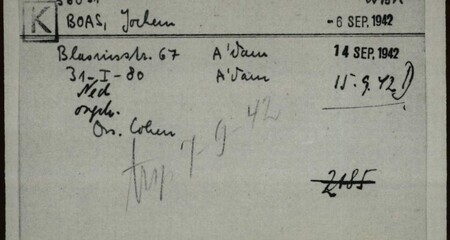 K BOAS, Jochem - 6 SEP. 1942
Blasiusstr. 67 A'dam 14 SEP. 1942
31-I-80 A'dam 15.9.42
Ned
ongeh.
Ors. Cohen
trsp 7-9-42
2185